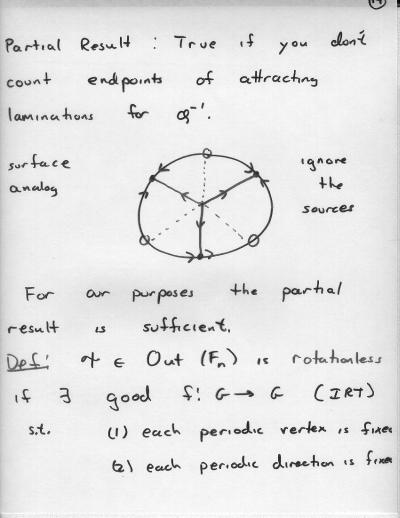 Partial Result : True if you don't
count endpoints of attracting
laminations for φ⁻¹.
surface
analog
ignore
the
sources
For our purposes the partial
result is sufficient.
Def: ψ ∈ Out (Fn) is rotationless
if ∃ good f: G → G (IRT)
s.t. (1) each periodic vertex is fixed
(2) each periodic direction is fixed